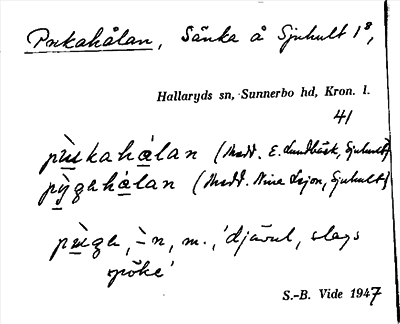 Pukahålan, Sänka å Sjuhult 1⁸,
Hallaryds sn, Sunnerbo hd, Kron. l.
41
pùkahálan (Medd. E. Lundbäck, Sjuhult)
pỳgahálan (Medd. Nina Lejon, Sjuhult)
pùga, -̀n, m., 'djävul, slags
spöke'
S.-B. Vide 1947